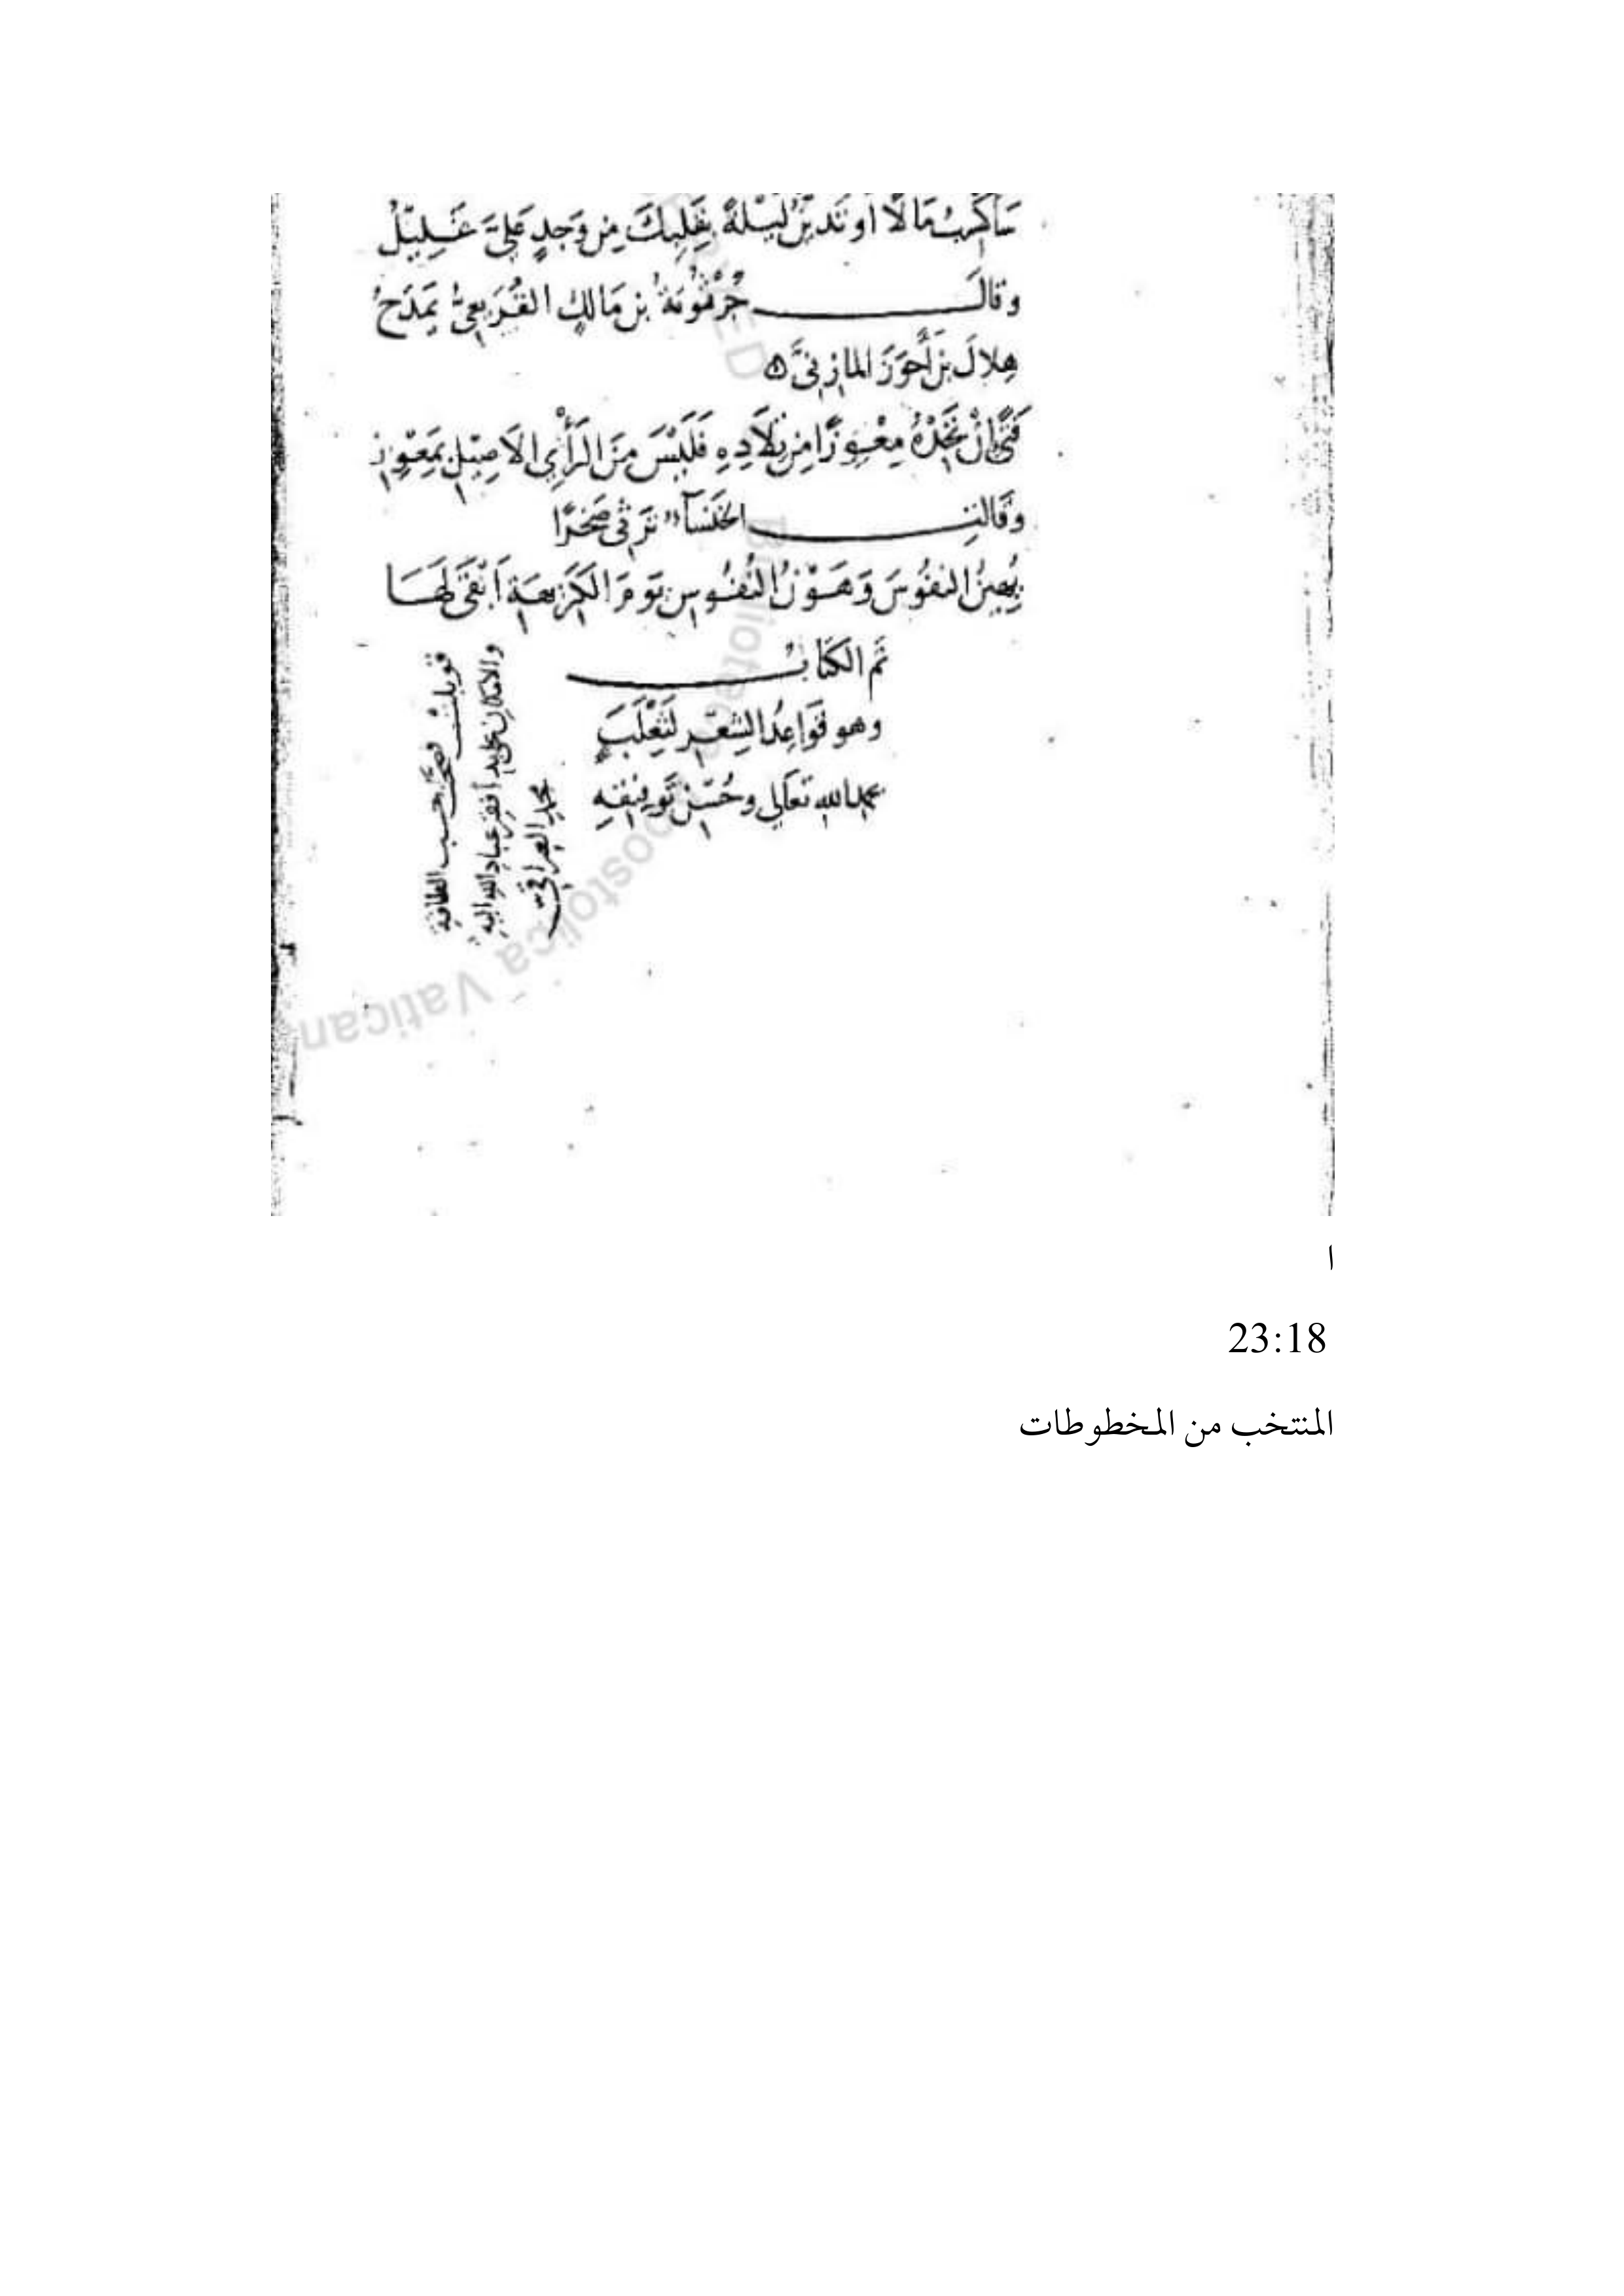 سَأَكْسِبُ مَالًا أَو تَبِيتنَّ لَيْلَةً بِقَلْبِكَ مِن وَجدٍ عَلَيَّ غَلِيلُ
وقالَ جُرْثُومَةُ بن مَالِكٍ القُرَيعِيُّ يَمدَحُ
هِلالَ بنَ أَحْوَزَ المازِنِيَّ ۵
فَتًى إِنْ تَجِدْهُ مِعْوِزًا مِن تِلَادِهِ فَلَيْسَ مِنَ الرَّأْيِ الأَصِيلِ بِمُعْوِزِ
وقَالتِ الخَنسَآء تَرثِي صَخرًا
يُهِينُ النفُوسَ وَهَوْنُ النُّفُوسِ يَومَ الكَرِيهَةِ أَبْقَى لَهَا
تَم الكتابُ
وهو قَوَاعِدُ الشِعْرِ لثَعْلَبَ
بحمد الله تعَالى وحُسْنِ تَوفيقِهِ
قوبلت فصحَّت حسب الطاقة
والامكان على يد أفقر عباد الله اليه
محمد العراقي
RESERVED
Biblioteca Apostolica Vatican
ا
23:18
المنتخب من المخطوطات